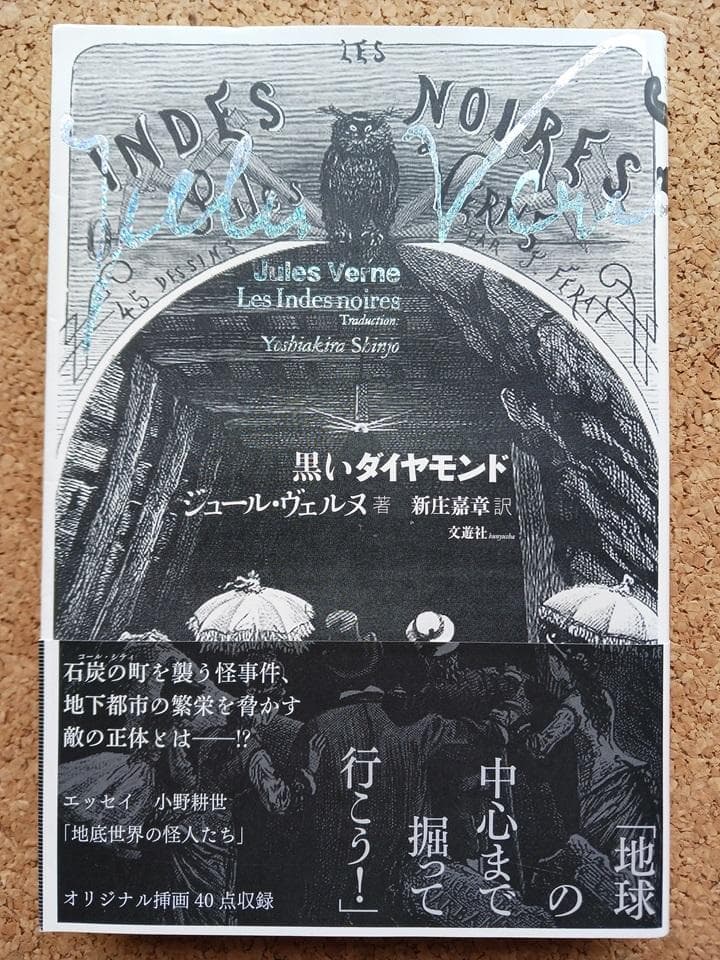 LES
INDES NOIRES
Jules Verne
45 DESSINS PAR J. FERAT
Jules Verne
Les Indes noires
Traduction:
Yoshiakira Shinjo
黒いダイヤモンド
ジュール・ヴェルヌ 著 新庄嘉章 訳
文遊社 bunyusha
コール・シティ
石炭の町を襲う怪事件、
地下都市の繁栄を脅かす
敵の正体とは──!?
エッセイ 小野耕世
「地底世界の怪人たち」
オリジナル挿画40点収録
「地球
の
中心まで
掘って
行こう!」